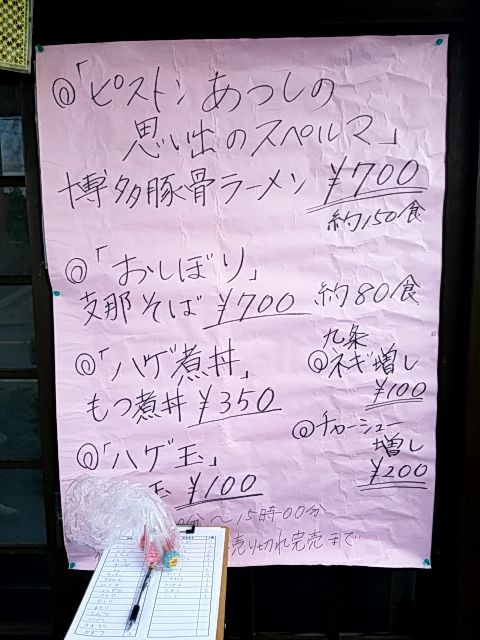 ◎「ピストンあつしの
思い出のスペルマ」
博多豚骨ラーメン ¥700
約150食
◎「おしぼり」
支那そば ¥700 約80食
◎「ハゲ煮丼」
もつ煮丼 ¥350
九条
◎ネギ増し
¥100
◎チャーシュー
増し
¥200
◎「ハゲ玉」
玉 ¥100
分〜15時00分
売り切れ完売まで